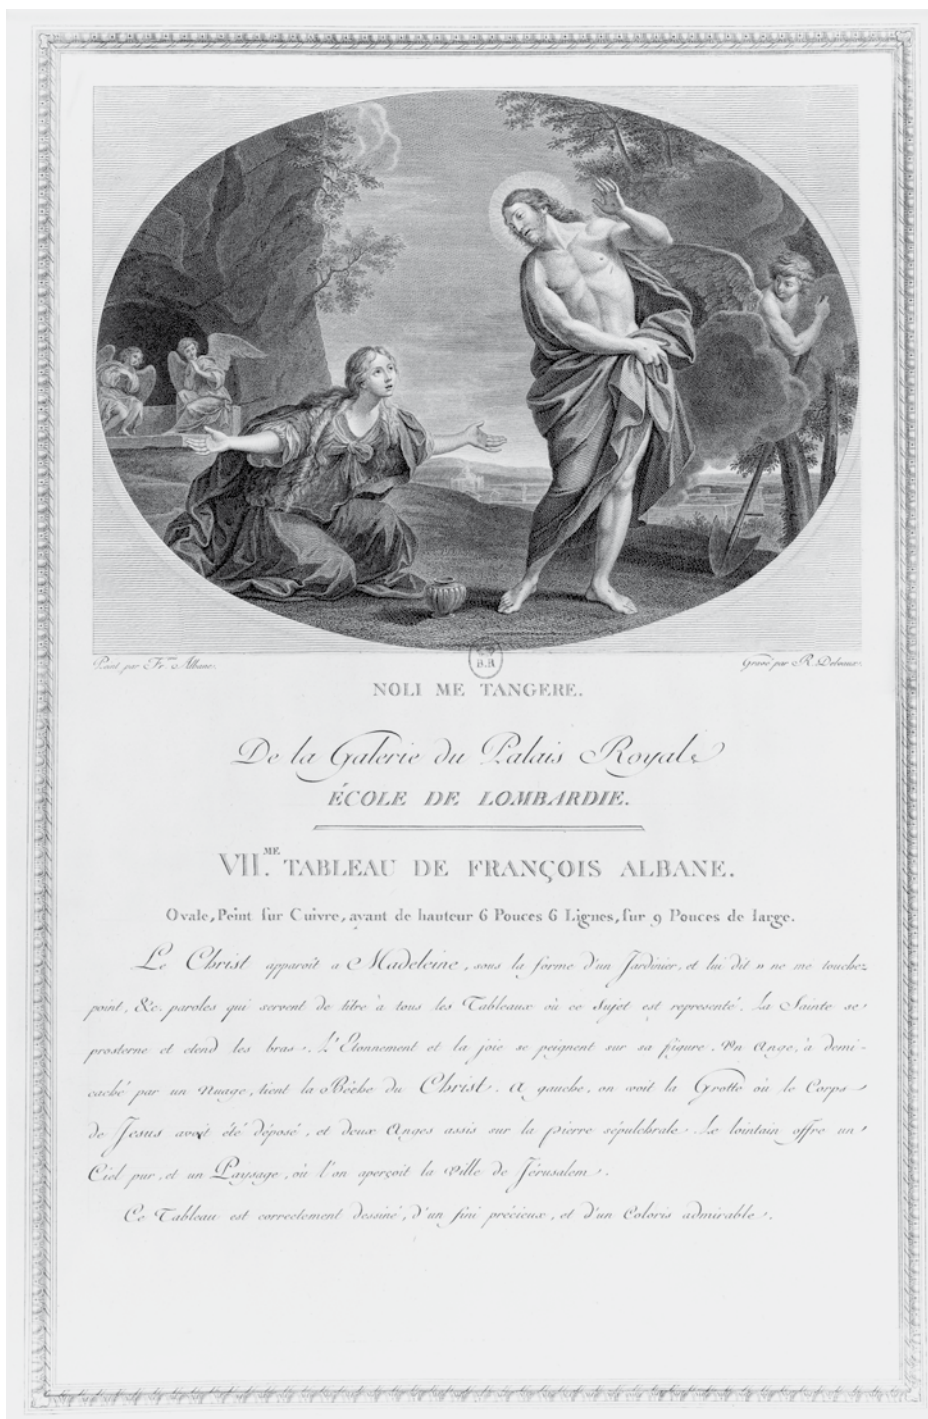 Peint par Fr. Albane.
B.R
Gravé par R. Delvaux.
NOLI ME TANGERE.
De la Galerie du Palais Royal.
ÉCOLE DE LOMBARDIE.
VII.ME TABLEAU DE FRANÇOIS ALBANE.
Ovale, Peint sur Cuivre, ayant de hauteur 6 Pouces 6 Lignes, sur 9 Pouces de large.
Le Christ apparoit a Madeleine, sous la forme d'un Jardinier, et lui dit » ne me touchez
point, &c. paroles qui servent de titre à tous les Tableaux où ce Sujet est representé. La Sainte se
prosterne et etend les bras. L'Etonnement et la joie se peignent sur sa figure. Un Ange, à demi-
caché par un Nuage, tient la Bêche du Christ. A gauche, on voit la Grotte où le Corps
de Jesus avoit été déposé, et deux Anges assis sur la pierre sépulchrale. Le lointain offre un
Ciel pur, et un Paysage, où l'on aperçoit la Ville de Jérusalem.
Ce Tableau est correctement dessiné, d'un fini précieux, et d'un Coloris admirable.